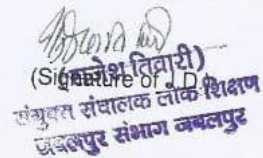 (राजेश तिवारी)
(Signature of J.D.)
संयुक्त संचालक लोक शिक्षण
जबलपुर संभाग जबलपुर